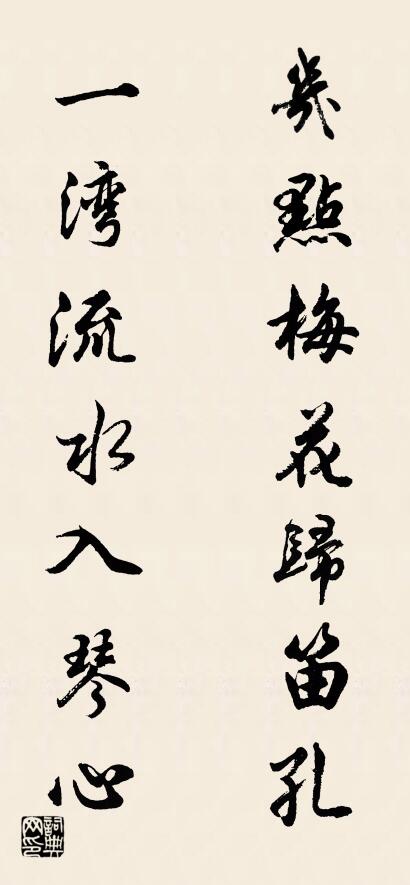 幾點梅花歸笛孔
一湾流水入琴心
詞典网印